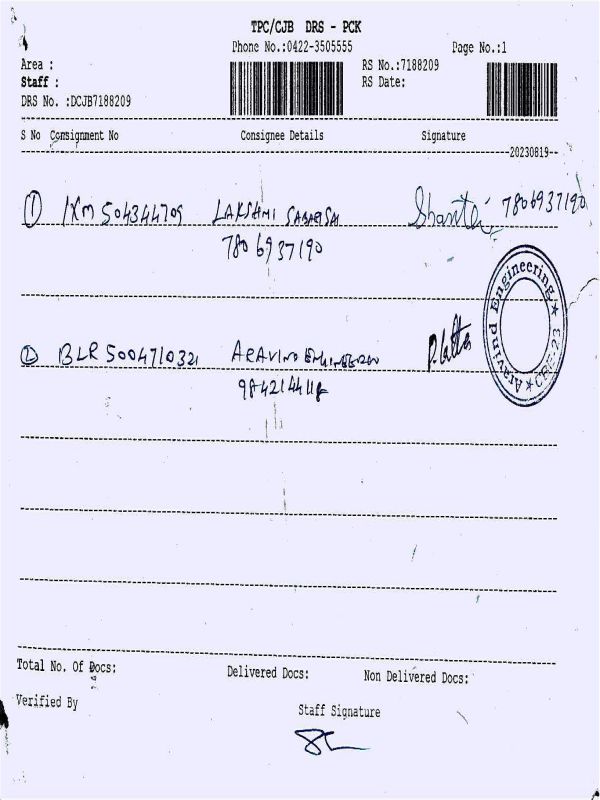 TPC/CJB DRS - PCK
Phone No.:0422-3505555 Page No.:1
Area : RS No.:7188209
Staff : RS Date:
DRS No. :DCJB7188209
S No Consignment No Consignee Details Signature
20230819
1 IXM 504344709 LAKSHMI SABARISAI Shanthi 7806937190
7806937190
2 BLR 5004710321 ARAVIND ENGINEERING
Aravind Engineering ★ CBE-23 ★
Total No. Of Docs: Delivered Docs: Non Delivered Docs:
Verified By Staff Signature